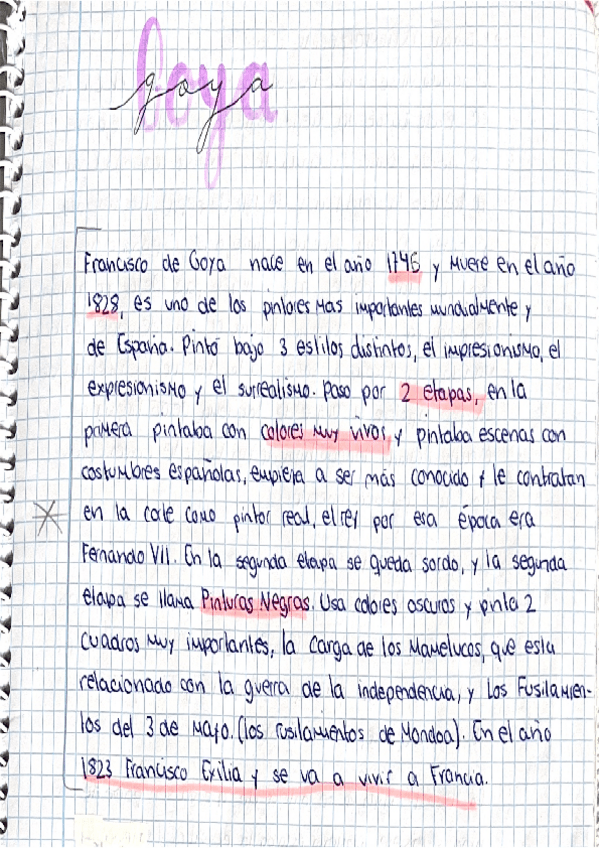 Goya
goya
Francisco de Goya nace en el año 1746 y muere en el año
1828, es uno de los pintores mas importantes mundialmente y
de España. Pintó bajo 3 estilos distintos, el impresionismo, el
expresionismo y el surrealismo. Paso por 2 etapas, en la
primera pintaba con colores muy vivos, y pintaba escenas con
costumbres españolas, empieza a ser más conocido y le contratan
en la corte como pintor real, el rey por esa época era
Fernando VII. En la segunda etapa se queda sordo, y la segunda
etapa se llama Pinturas Negras. Usa colores oscuros y pinta 2
cuadros muy importantes, la Carga de los Mamelucos, que esta
relacionado con la guerra de la independencia, y Los Fusilamien-
tos del 3 de Mayo. (los fusilamientos de Mondoa). En el año
1823 Francisco Exilia y se va a vivir a Francia.